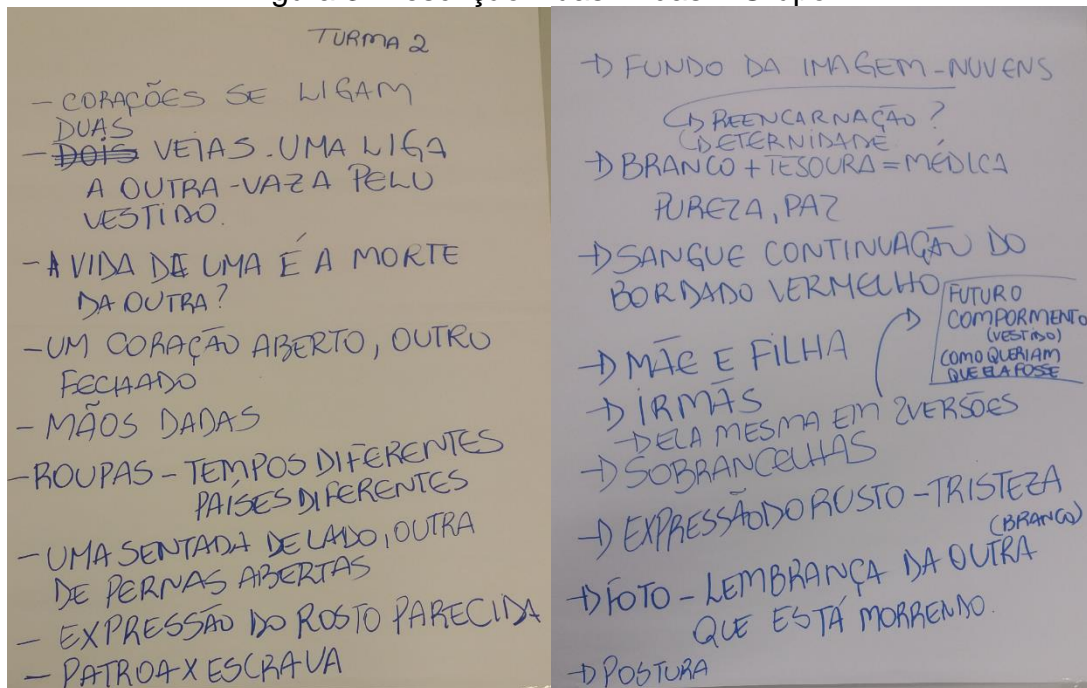 TURMA 2
- CORAÇÕES SE LIGAM
DUAS
- DOIS VEIAS. UMA LIGA
A OUTRA - VAZA PELO
VESTIDO.
- A VIDA DE UMA É A MORTE
DA OUTRA?
- UM CORAÇÃO ABERTO, OUTRO
FECHADO
- MÃOS DADAS
- ROUPAS - TEMPOS DIFERENTES
PAÍSES DIFERENTES
- UMA SENTADA DE LADO, OUTRA
DE PERNAS ABERTAS
- EXPRESSÃO DO ROSTO PARECIDA
- PATROA X ESCRAVA
→ FUNDO DA IMAGEM - NUVENS
↳ REENCARNAÇÃO?
↳ ETERNIDADE
→ BRANCO + TESOURA = MÉDICA
PUREZA, PAZ
→ SANGUE CONTINUAÇÃO DO
BORDADO VERMELHO
FUTURO
COMPORMENTO
(VESTIDO)
COMO QUERIAM
QUE ELA FOSSE
→ MÃE E FILHA
→ IRMÃS
→ ELA MESMA EM 2 VERSÕES
→ SOBRANCELHAS
→ EXPRESSÃO DO ROSTO - TRISTEZA
(BRANCO)
→ FOTO - LEMBRANÇA DA OUTRA
QUE ESTÁ MORRENDO.
→ POSTURA